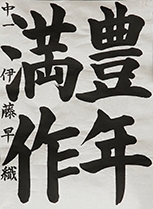 豊年
満作
中一 伊藤早織